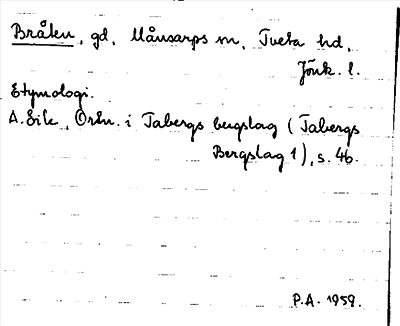 Bråten, gd, Månsarps sn, Tveta hd,
Jönk. l.
Etymologi.
A. Eile, Ortn. i Tabergs bergslag (Tabergs
Bergslag 1), s. 46.
P.A. 1959.